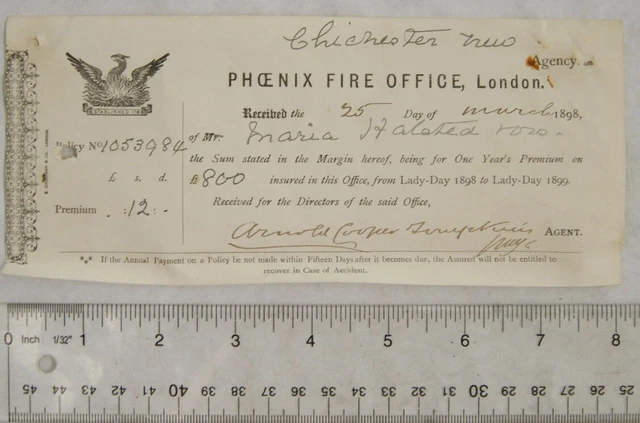 Chichester new
Agency.
PHŒNIX FIRE OFFICE, London.
Received the 25 Day of March 1898,
Policy No 1053984
of Mr. Maria Halsted
the Sum stated in the Margin hereof, being for One Year's Premium on
£ s. d.
£800 insured in this Office, from Lady-Day 1898 to Lady-Day 1899.
Premium . :12:-
Received for the Directors of the said Office,
Arnold Cooper AGENT.
*** If the Annual Payment on a Policy be not made within Fifteen Days after it becomes due, the Assured will not be entitled to
recover in Case of Accident.
0 Inch 1/32" 1 2 3 4 5 6 7 8
45 44 43 42 41 40 39 38 37 36 35 34 33 32 31 30 29 28 27 26 25